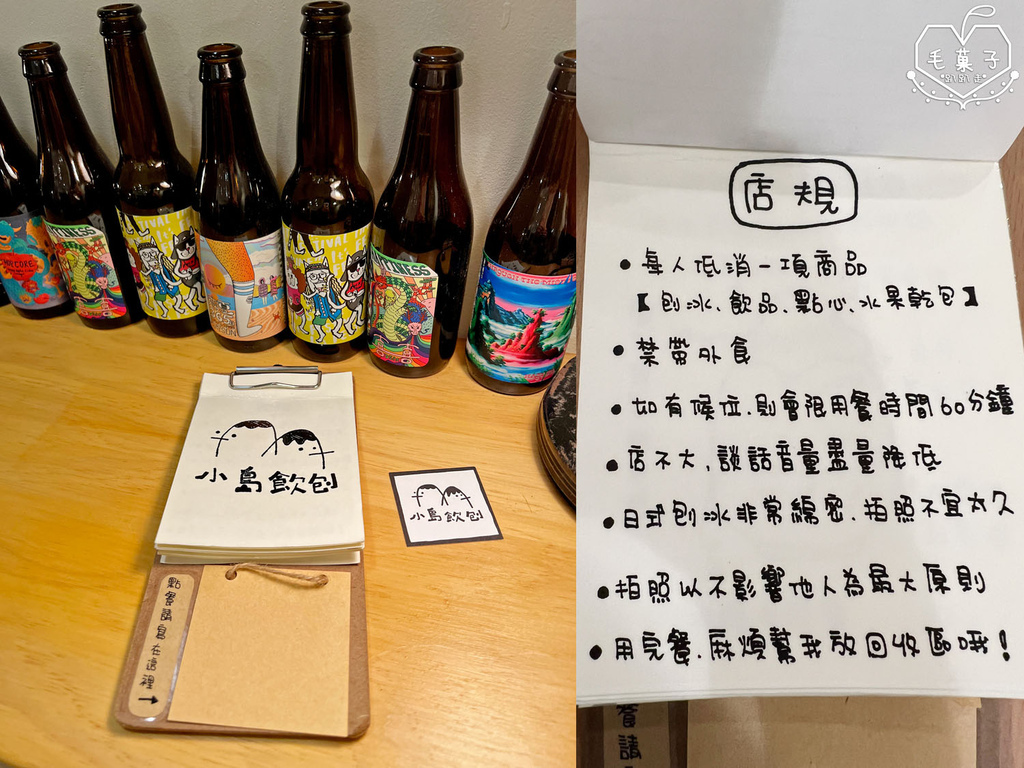 FESTIVAL
小島飲刨
小島飲刨
點餐請寫在這裡→
毛菓子
趴趴走
店規
•每人低消一項商品
【刨冰、飲品、點心、水果乾包】
•禁帶外食
•如有候位.則會限用餐時間60分鐘
•店不大,談話音量盡量降低
•日式刨冰非常綿密.拍照不宜太久
•拍照以不影響他人為最大原則
•用完餐.麻煩幫我放回收區哦!
餐請